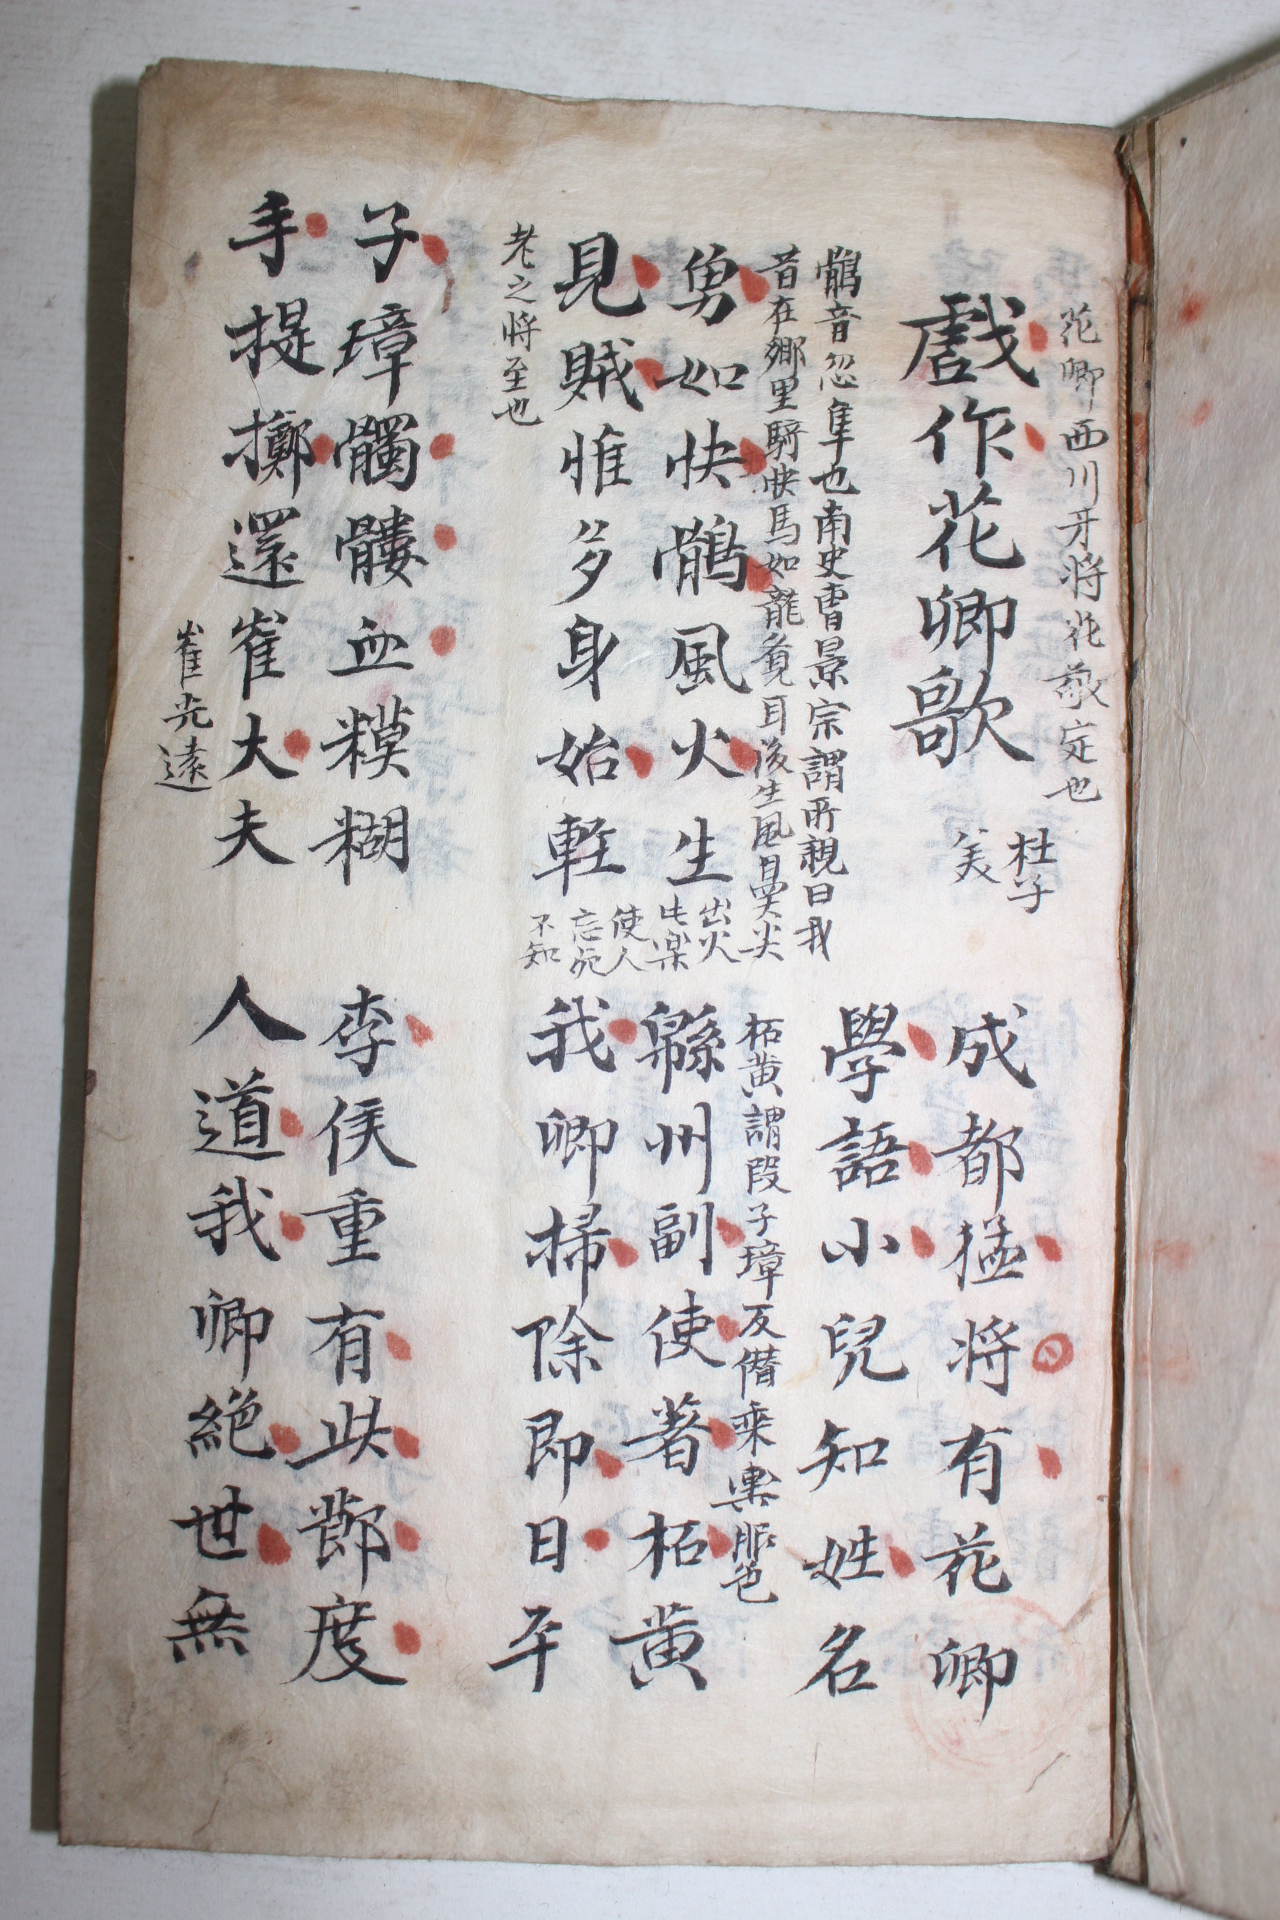 花卿西川牙將花敬定也
戲作花卿歌
杜子
美
成都猛將有花卿
學語小兒知姓名
鶻音忽隼也南史曹景宗謂所親曰我
昔在鄉里騎快馬如龍覺耳後生風鼻尖
出火
此樂
使人
忘死
不知
老之將至也
勇如快鶻風火生
見賊惟多身始輕
柘黃謂段子璋反僭乘輿服色
緜州副使著柘黃
我卿掃除即日平
子璋髑髏血糢糊
手提擲還崔大夫
崔光遠
李侯重有此節度
人道我卿絕世無